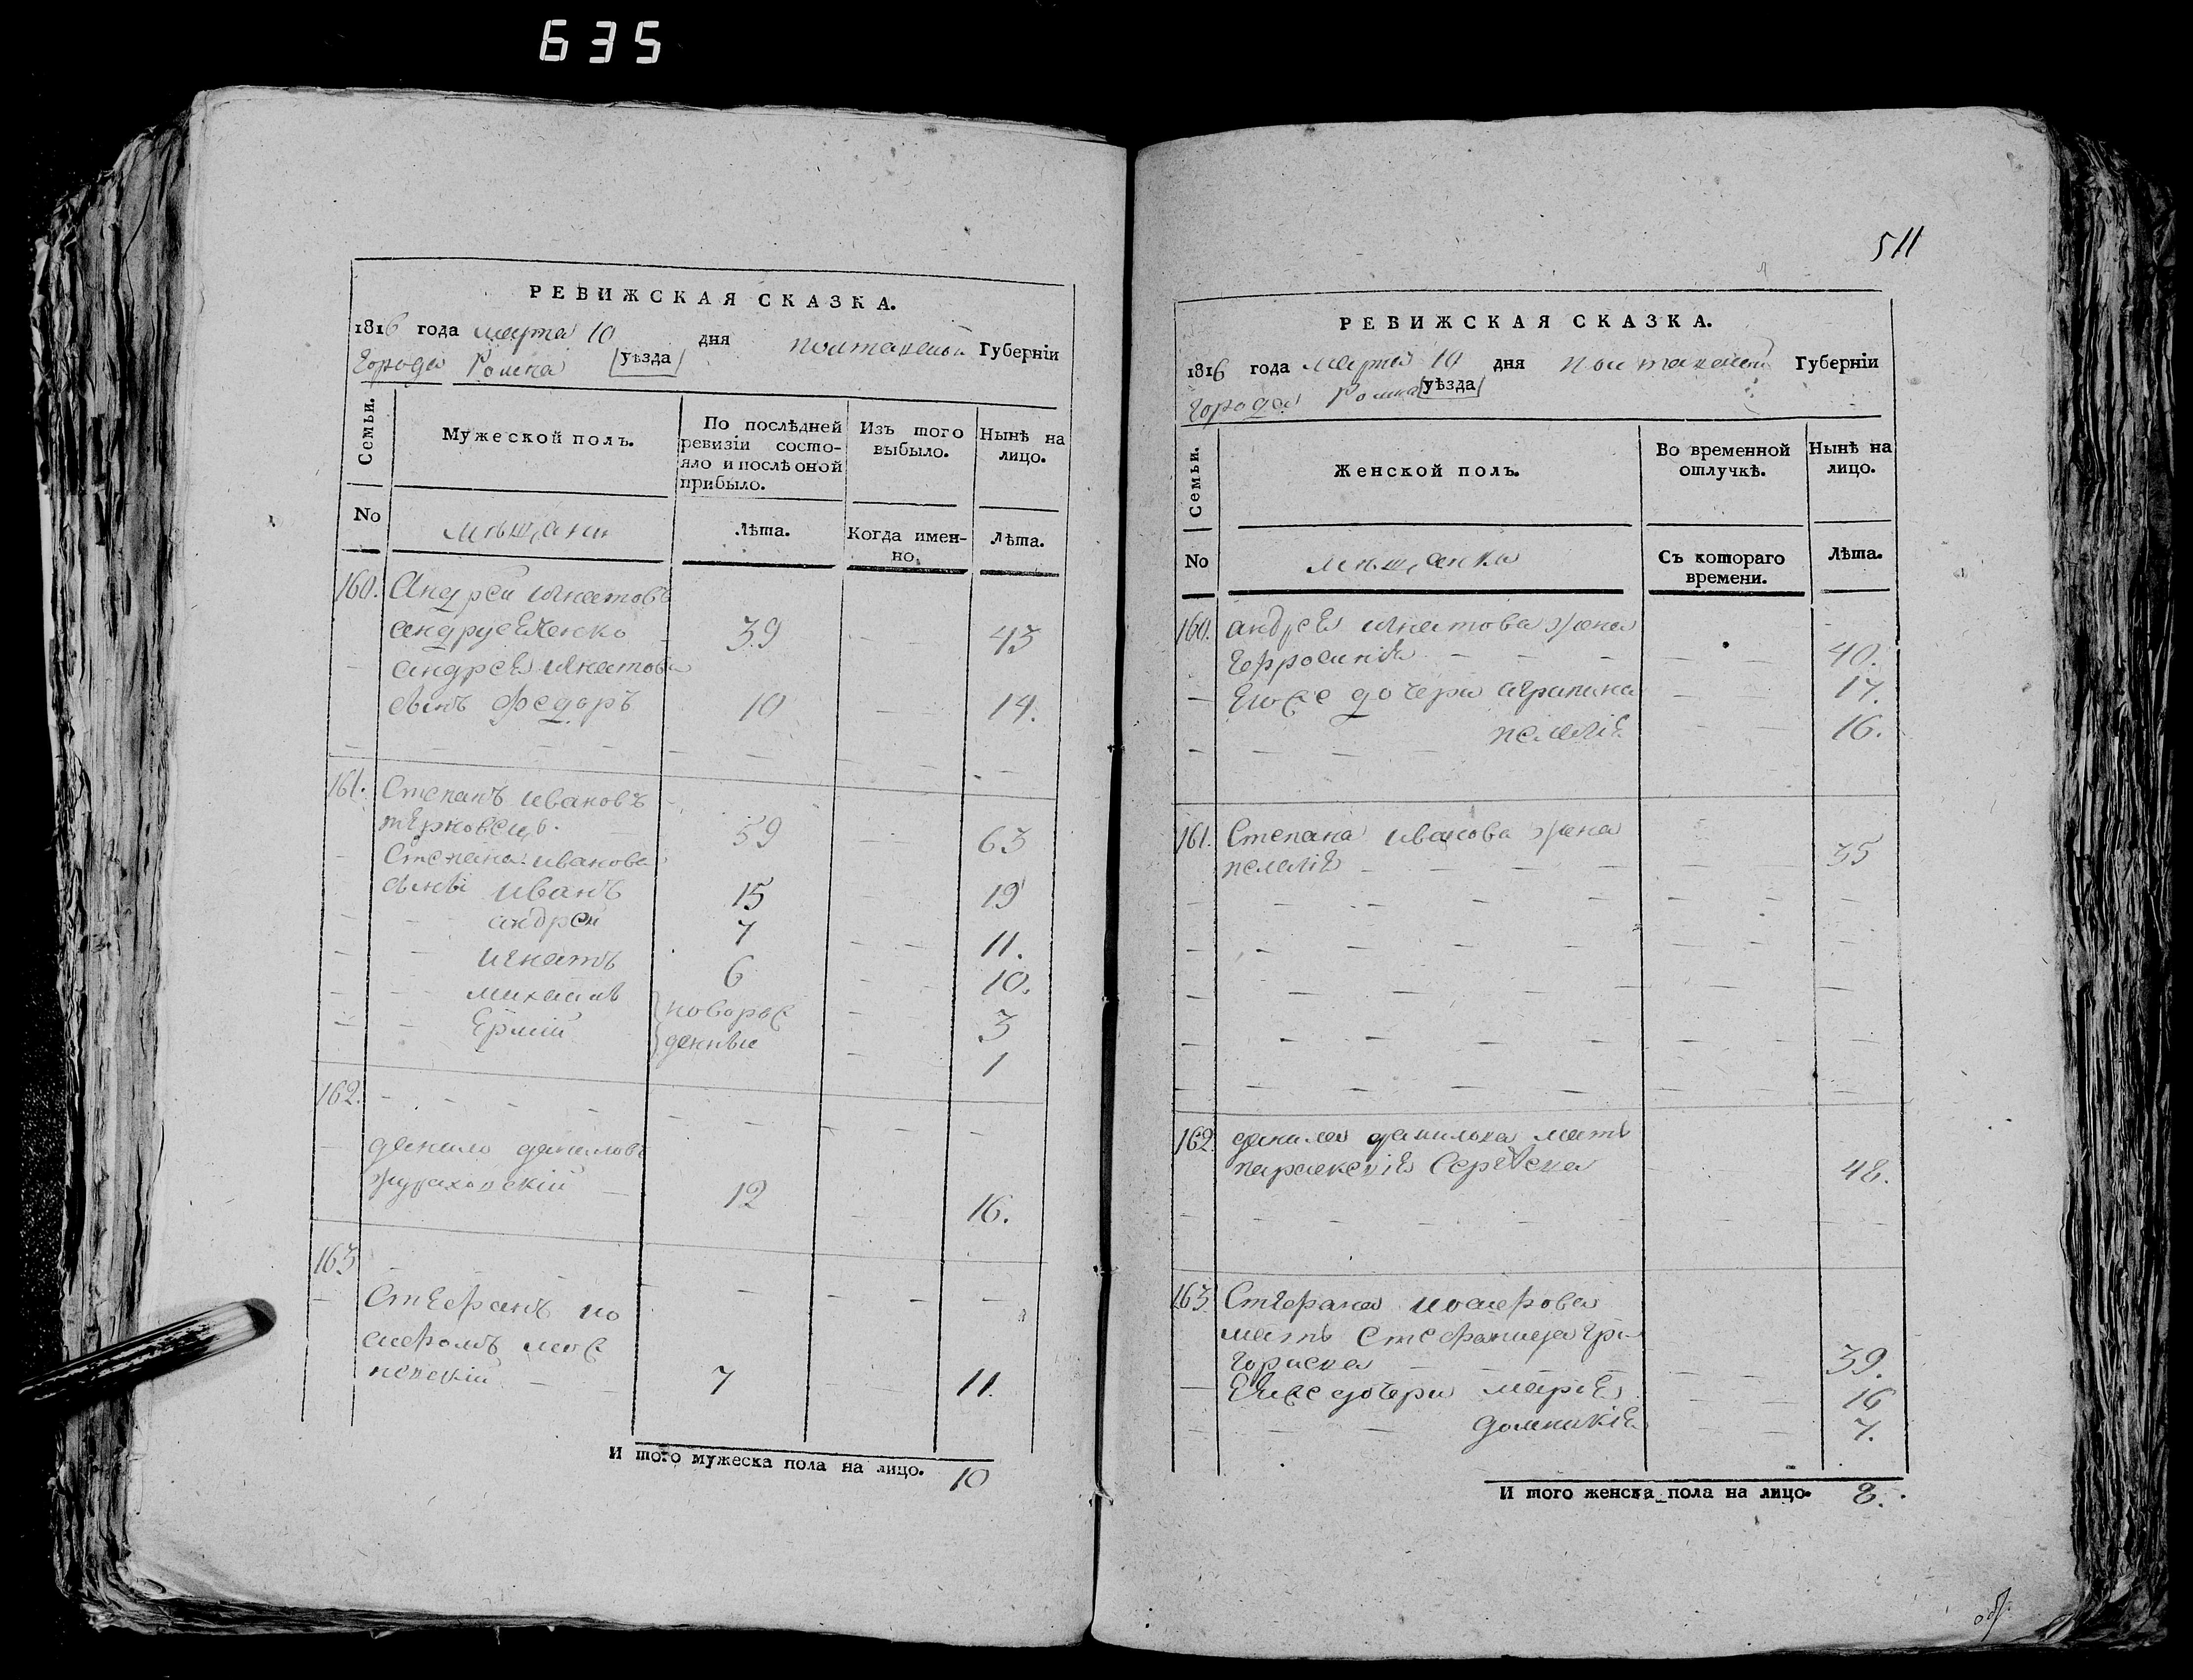 635
РЕВИЖСКАЯ СКАЗКА.
1816 года марта 10 дня полтавской Губерніи
Города Ромна уѣзда
Семьи.
Мужеской полъ.
По послѣдней ревизіи состо-
яло и послѣ оной прибыло.
Изъ того выбыло.
Нынѣ на лицо.
No
мѣщани
Лѣта.
Когда имен-
но.
Лѣта.
160. Андрей игнатовъ
андрусенко 39 43
андрея игнатова
сынъ федоръ 10 14.
161. Степанъ ивановъ
терновецъ. 59 63
Степана иванова
сыны иванъ 15 19
андрей 7 11.
игнатъ 6 10.
михаилъ новорож 3
Ермій денные 1
162.
данило даниловъ
жураховскій 12 16.
163
Стефанъ ио
сифовъ
7 11.
И того мужеска пола на лицо. 10
511
РЕВИЖСКАЯ СКАЗКА.
1816 года марта 10 дня полтавской Губерніи
Города Ромна уѣзда
Семьи.
Женской полъ.
Во временной отлучкѣ.
Нынѣ на лицо.
No
мѣщанки
Съ котораго времени.
Лѣта.
160. андрея игнатова жена
Ефросинія 40.
Егоже дочери агрипина 17.
пелагія 16.
161. Степана иванова жена
пелагія 35
162 данила данилова мать
параскевія Сергѣева 48.
163 Стефана иосифова
мать Стефанида гри
гориева 39.
Еяже дочери марія 16
домникія 7.
И того женска пола на лицо. 8.
об.